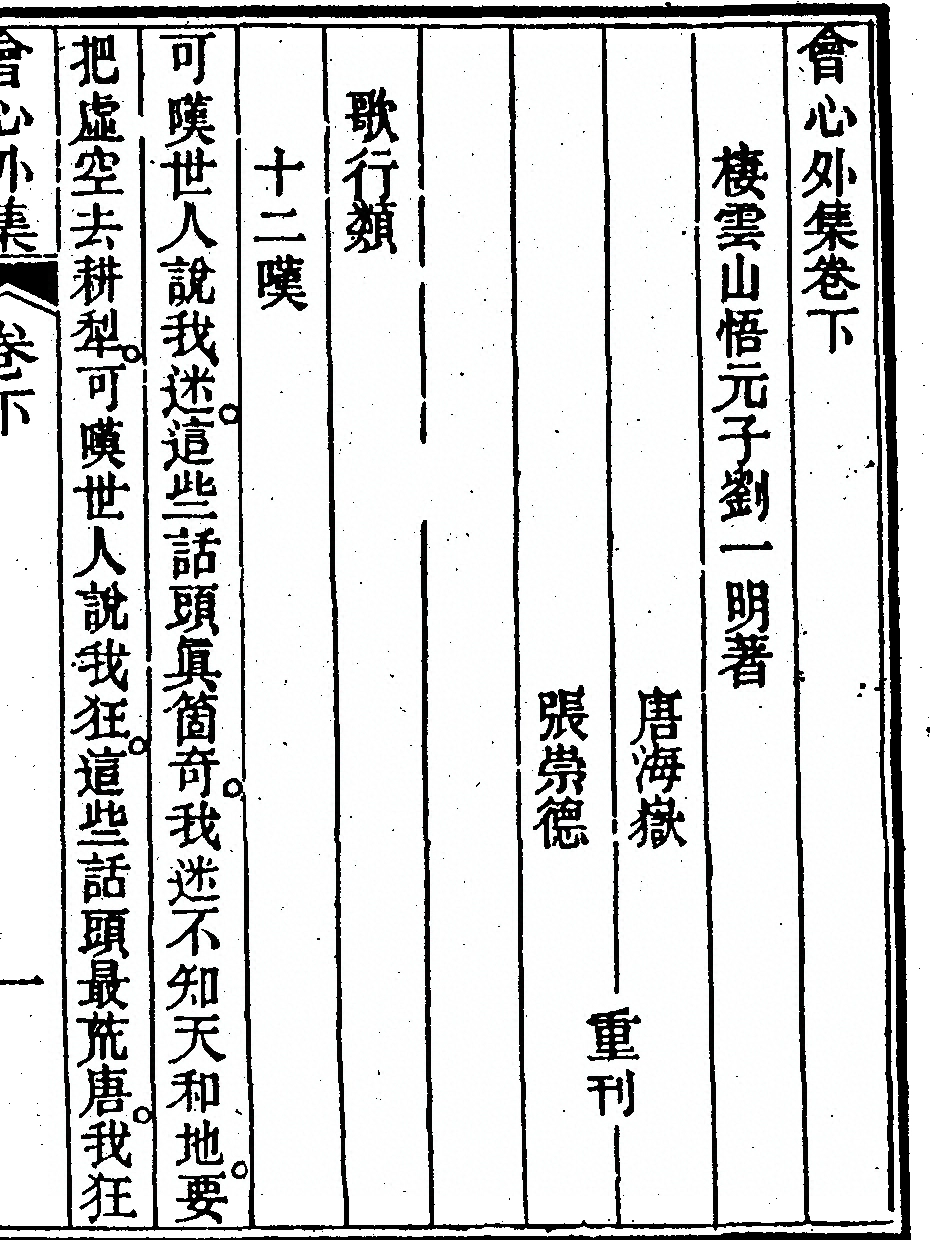 會心外集卷下
棲雲山悟元子劉一明著
唐海嶽
張崇德
重刊
歌行類
十二嘆
可嘆世人說我迷。這些話頭眞箇奇。我迷不知天和地。要
把虛空去耕犁。可嘆世人說我狂。這些話頭最荒唐。我狂
會心外集 卷下 一